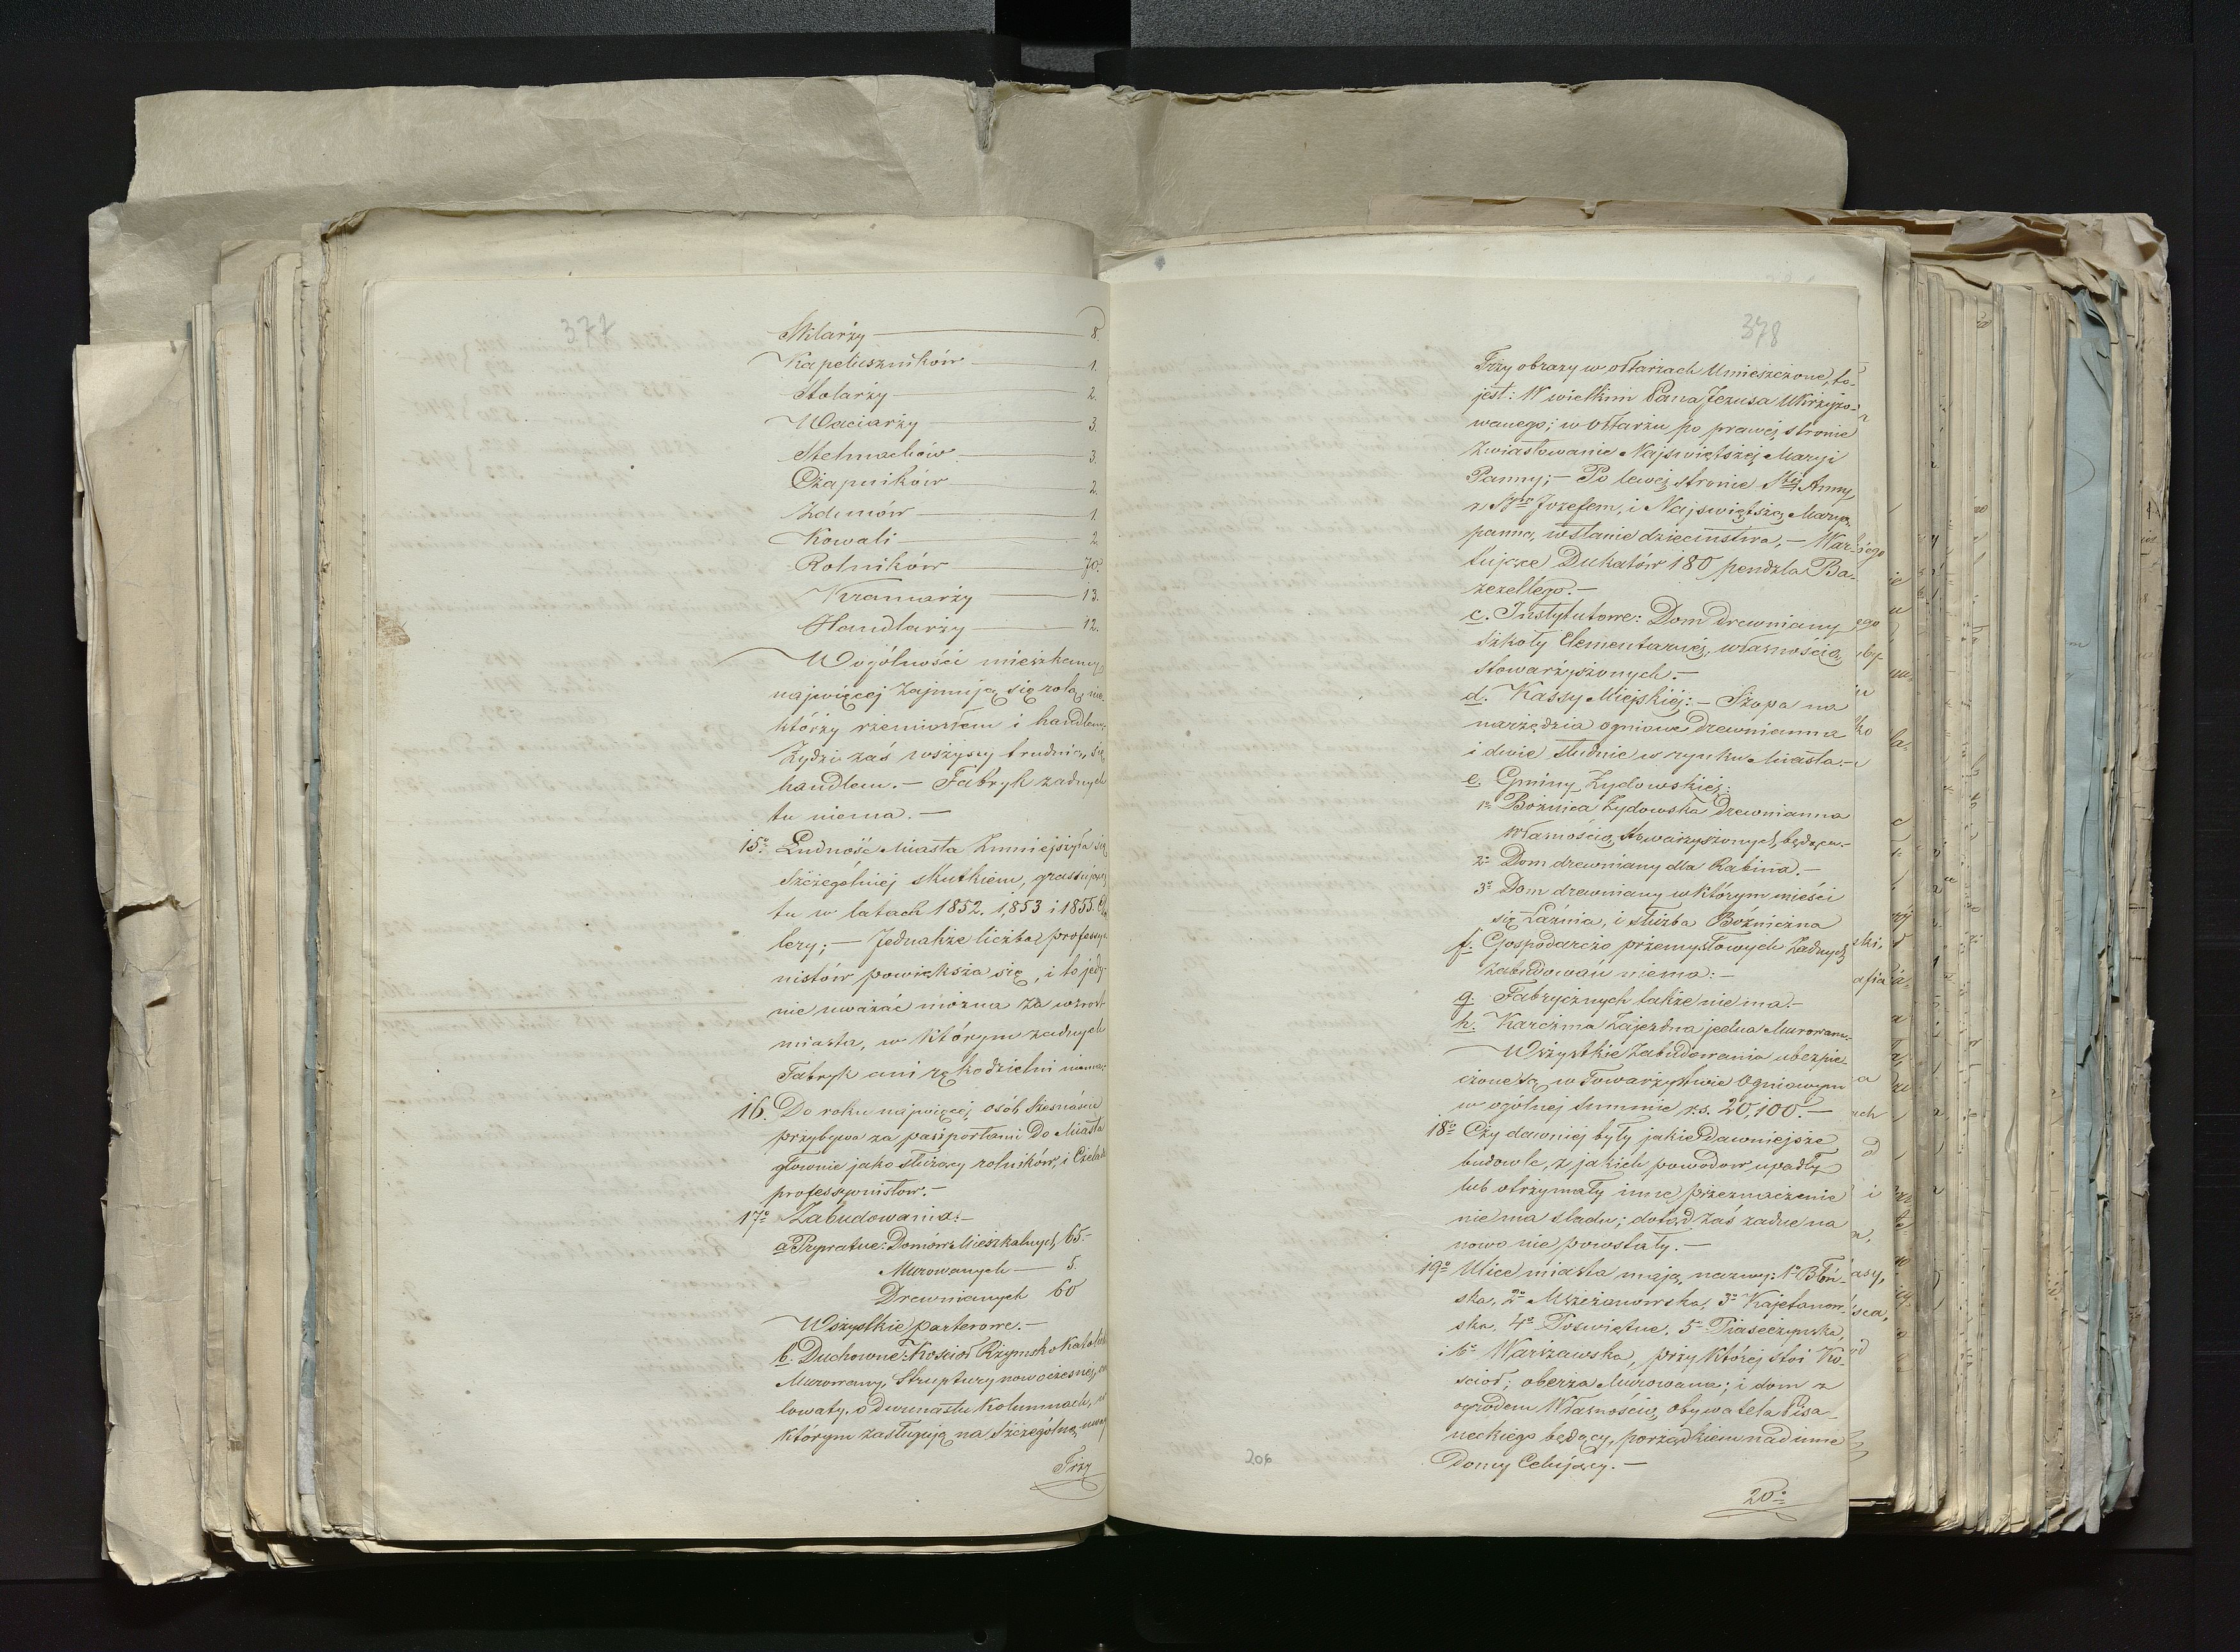 377
Szklarzy 8.
Kapeluszników 1.
Stolarzy 2.
Waciarzy 3.
Stelmachów 3.
Czapników 2.
Zdunów 1.
Kowali 2.
Rolników 70.
Kramarzy 13.
Handlarzy 12.
W ogólności mieszkańcy
najwięcej zajmują się rolą, nie-
którzy rzemiosłem i handlem.
Żydzi zaś wszyscy trudnią się
handlem. — Fabryk żadnych
tu niema. —
15o Ludność Miasta Zmniejszyła się
Szczególniej skutkiem, grassującej
tu w latach 1852. 1853 i 1855. Cho
lery; — Jednakże liczba professyo
nistów powiększa się, i to jedy
nie uważać można za wzrost
miasta, w którym żadnych
Fabryk ani rękodzielni niema.
16. Do roku najwięcej osób szesnaście
przybywa za paszportami Do Miasta
głownie jako służący rolników, i Czeladź
professyonistow. —
17o Zabudowania: —
a Prywatne: Domów Mieszkalnych 65. —
Murowanych — 5.
Drewnianych 60
Wszystkie parterowe. —
b. Duchowne: Kościoł Rzymsko Katolicki
Murowany, Struktury nowoczesnej, o
lowaty, o dwunastu Kolumnach, w
którym zasługują na Szczególną uwagę
Trzy
378
Trzy obrazy w ołtarzach Umieszczone, to-
jest: W wielkim Pana Jezusa Ukrzyżo-
wanego; w Ołtarzu po prawej stronie
Zwiastowanie Najświętszej Maryi
Panny; — Po lewej stronie Stej Anny,
z Stym Jozefem, i Najświętszą Maryą
panną, w stanie dzieciństwa, — War-
tujące Dukatów 180 pendzla Ba-
zezellego. —
c. Instytutowe: Dom drewniany
Szkoły Elementarnej, własnością
stowarzyszonych. —
d. Kassy Miejskiéj: — Szopa na
narzędzia ogniowe drewnianna
i dwie studnie w rynku Miasta. —
e. Gminy Żydowskiej:
1o Bożnica Żydowska Drewnianna
Własnością Stowarzyszonych będąca. —
2o Dom drewniany dla Rabina. —
3o Dom drewniany w którym mieści
się Łaźnia, i służba Bóżniczna
f. Gospodarczo przemysłowych żadnych
zabudowań niema: —
g. Fabrycznych także niema. —
h. Karczma Zajezdna jedna Murowana.
Wszystkie zabudowania ubezpie-
czone są w Towarzystwie Ogniowym
w ogólnej summie r.s. 20,100. —
18o Czy dawniej były jakie Dawniejsze
budowle, z jakich powodow upadły
lub otrzymały inne przeznaczenie
niema sladu; dotąd zaś żadne na
nowo nie powstały. —
19o Ulice miasta mają nazwy: 1o Błoń-
ska, 2o Mszczonowska, 3o Kajetanow-
ska, 4o Poświętne, 5o Piaseczyńska,
i 6o Warszawska, przy której stoi Ko-
scioł; oberza Murowana; i dom z
ogrodem Własnością obywatela Pisa-
neckiego będący, porządkiem nad inne
Domy Celujący. —
20o
206